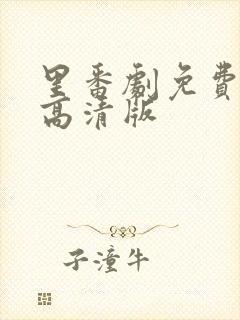 里番劇免費
高清版
子潼牛